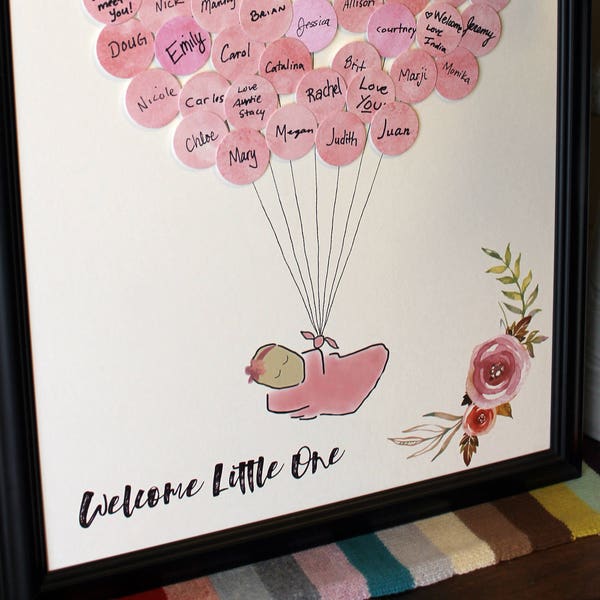 meet
you!
Nick
Mandy
BRIAN
Jessica
Allison
courtney
♡Welcome
Love
India
Jeremy
DOUG
Emily
Carol
Catalina
Brit
Marji
Monika
Nicole
Carlos
Love
Auntie
Stacy
Rachel
Love
You
Chloe
Mary
Megan
Judith
Juan
Welcome Little One